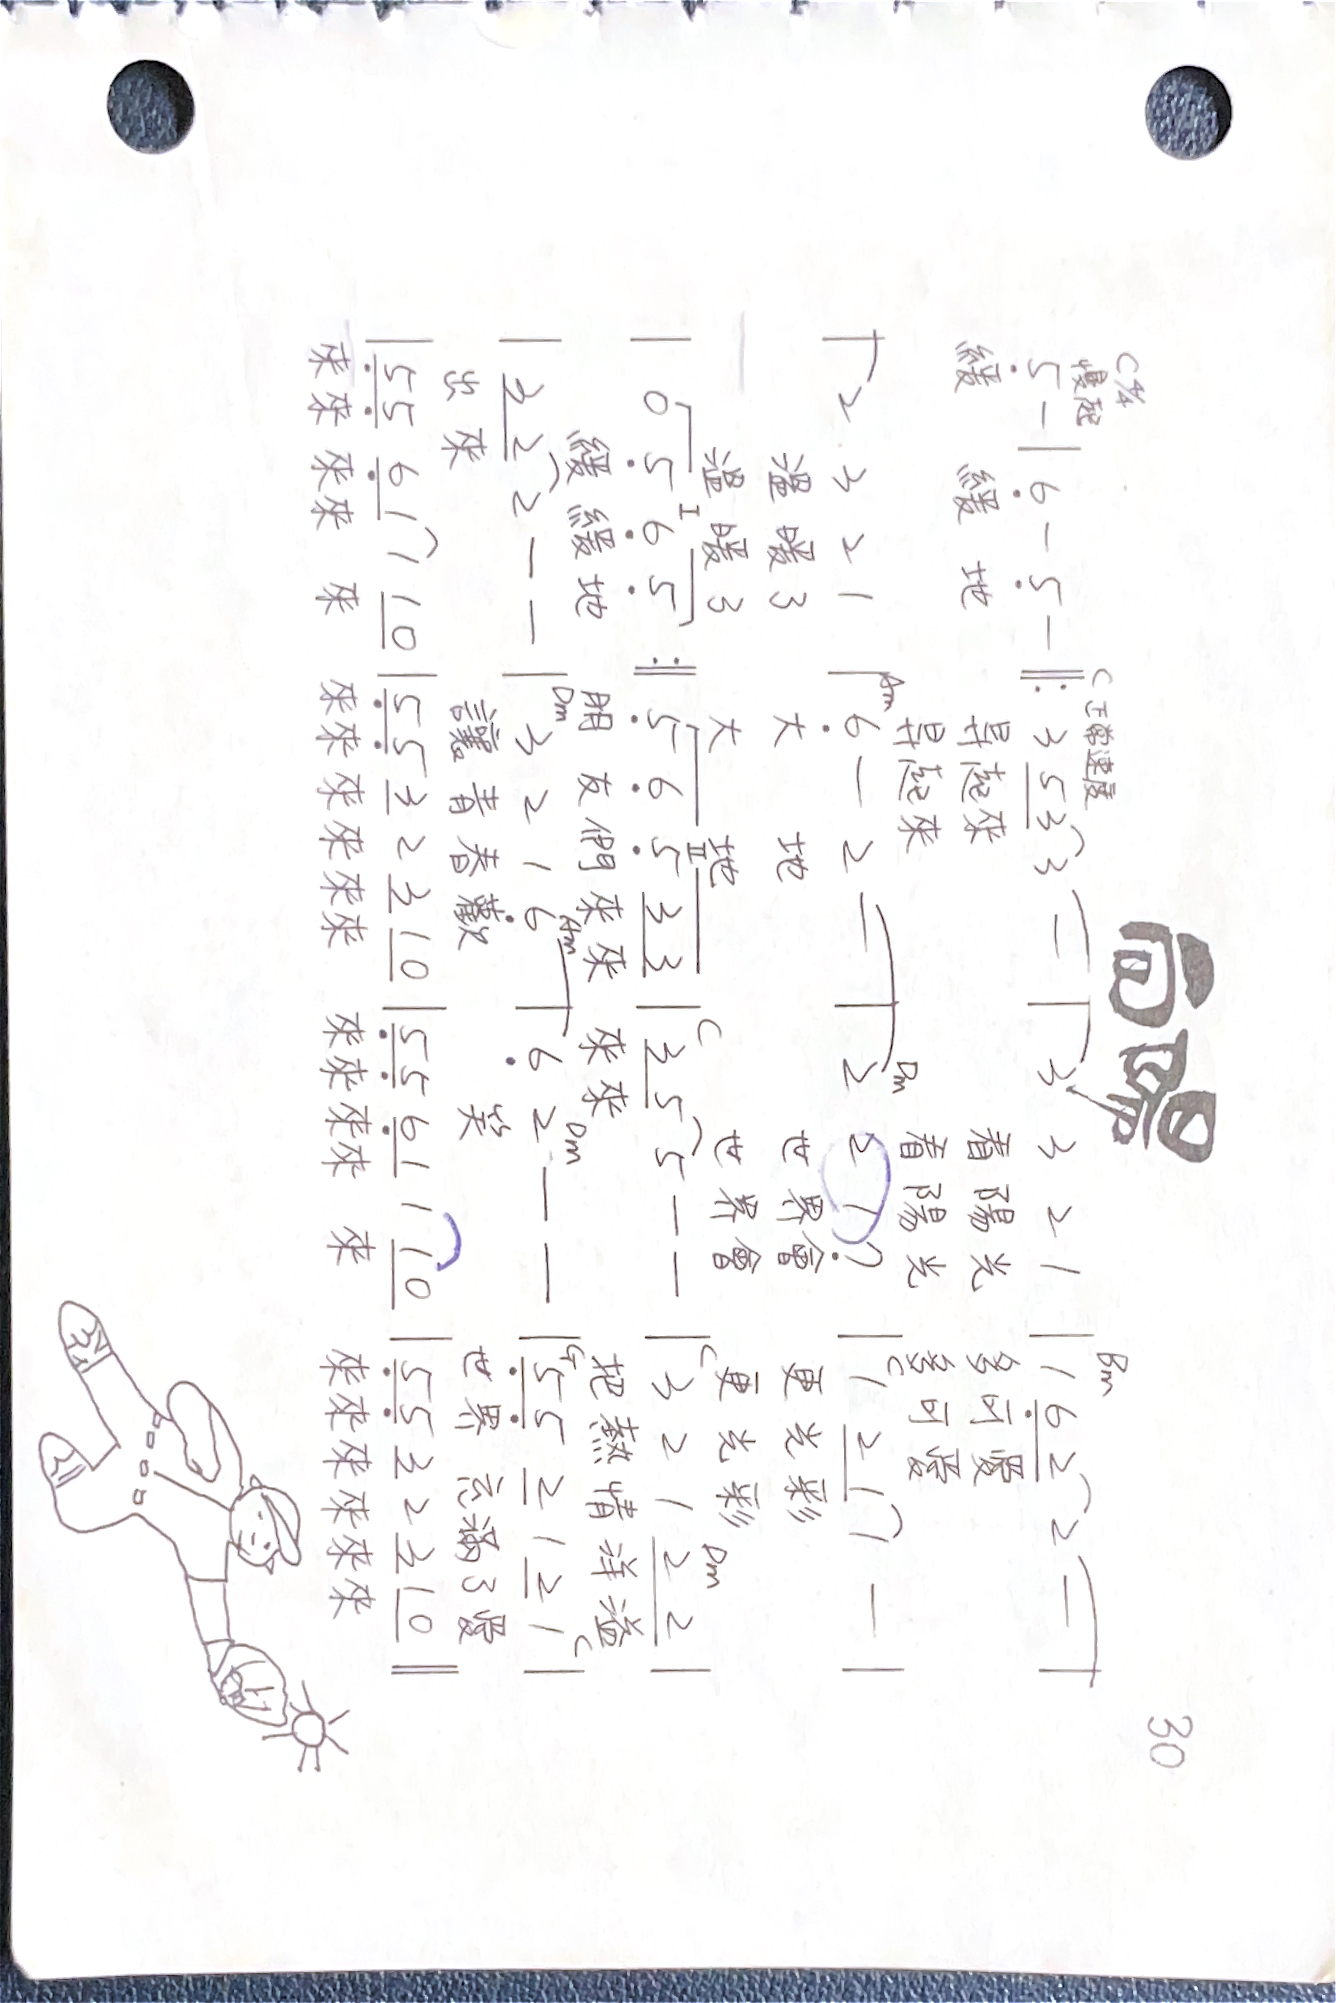 向陽
30
C 4/4
慢起 C 正常速度 Bm
5 - | 6 - 5 - ‖: 3 5 3 3 - | 3 3 2 1 | 1 6 2 2 - |
緩 緩 地 昇起來 看陽光 多可愛
昇起來 看陽光 多可愛
Am Dm C
| 2 3 2 1 | 6 - 2 - | 2 2 1 7 | 1 2 1 1 - |
溫暖了 大 地 世界會 更光彩
溫暖了 大 地 世界會 更光彩
I II C C Dm
| 0 5 6 5 :‖ 5 6 5 3 3 | 3 5 5 - - | 3 2 1 2 2 |
緩緩地 朋友們來來 來來 把熱情洋溢
Dm Am Dm G C
| 3 2 2 - - | 3 2 1 6 | 6 2 - - | 5 5 2 1 2 1 |
出來 讓青春歡 笑 世界充滿了愛
| 5 5 6 1 1 1 0 | 5 5 3 2 3 1 0 | 5 5 6 1 1 1 0 | 5 5 3 2 3 1 0 ‖
來來來來 來 來來來來來來 來來來來 來 來來來來來來